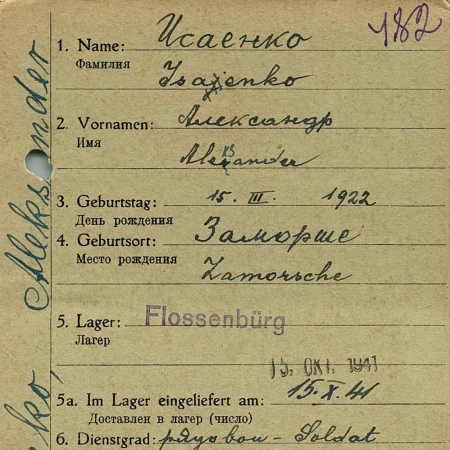 182
1. Name: Исаенко
Фамилия Isajenko
2. Vornamen: Александр
Имя Alexander
3. Geburtstag: 15. III. 1922
День рождения
4. Geburtsort: Заморше
Место рождения Zamorsche
5. Lager: Flossenbürg
Лагерь
15. OKT. 1941
5a. Im Lager eingeliefert am: 15.X.41
Доставлен в лагерь (число)
6. Dienstgrad: рядовои - Soldat
ko, Aleksander